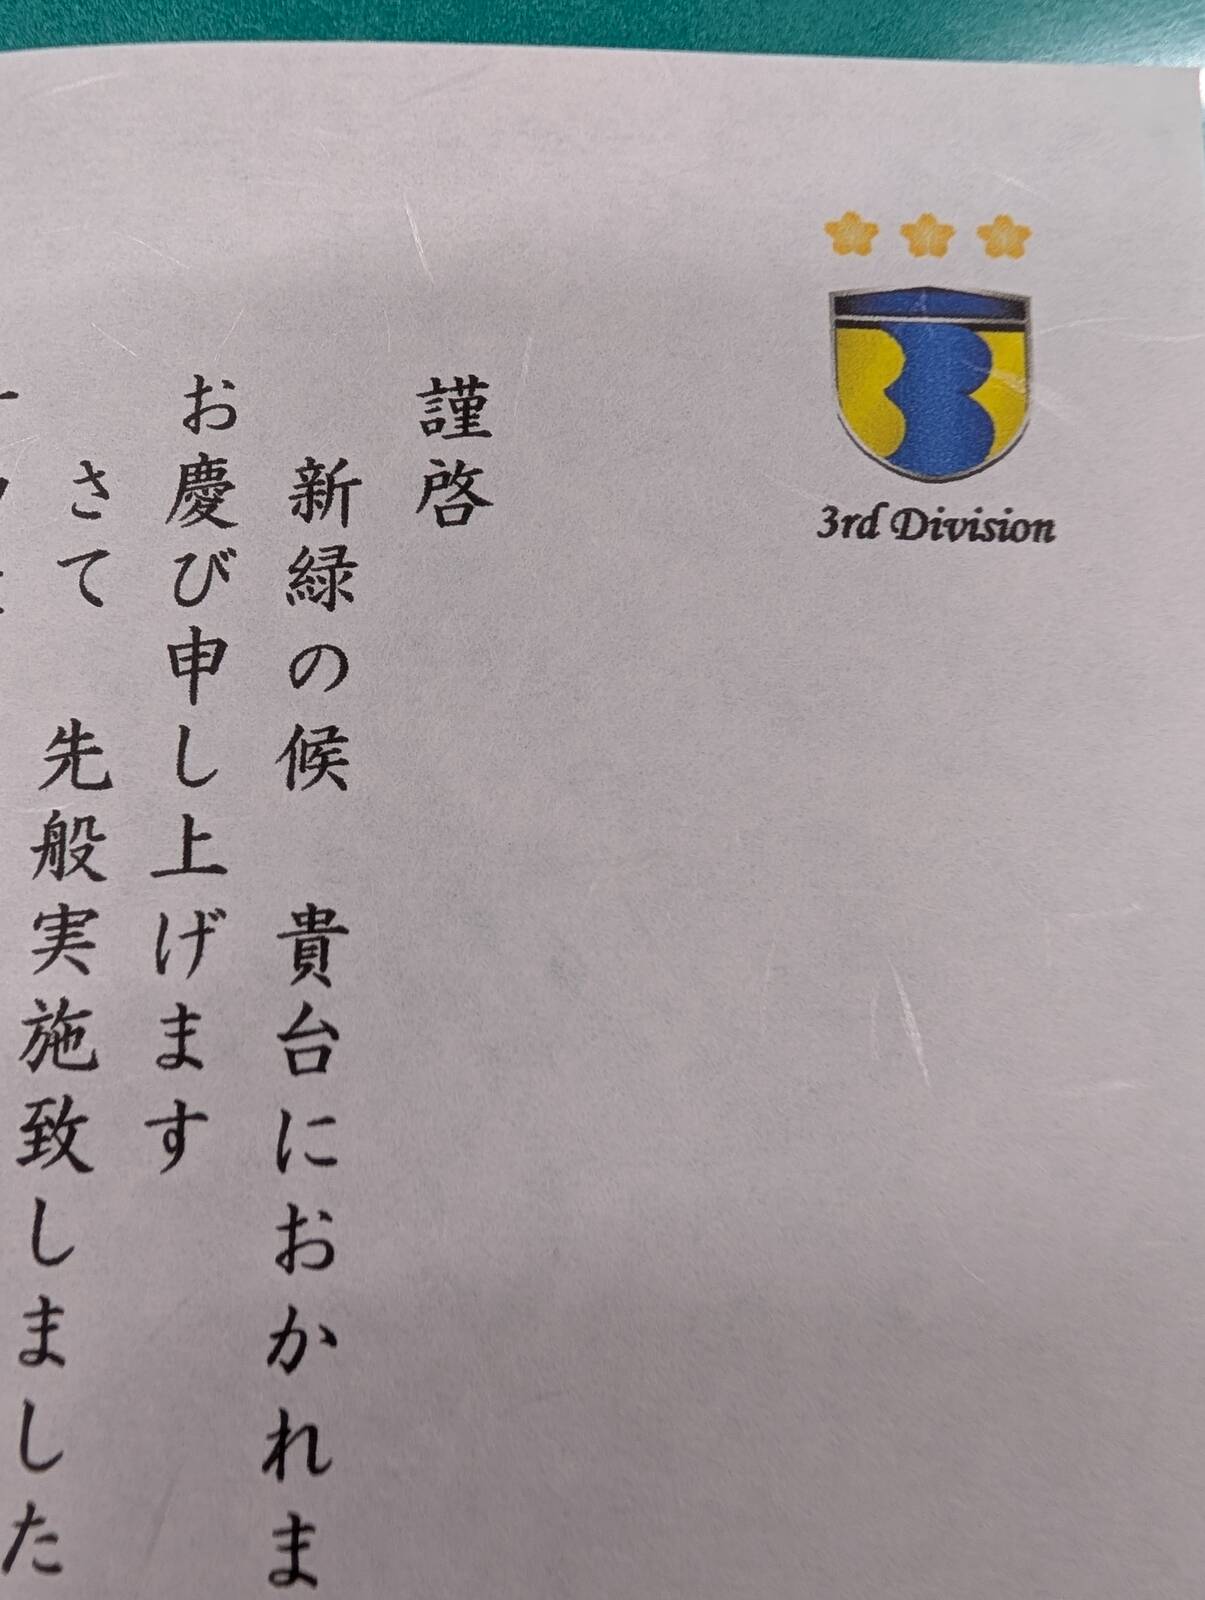 3rd Division
謹啓
新緑の候　貴台におかれま
お慶び申し上げます
さて　先般実施致しました